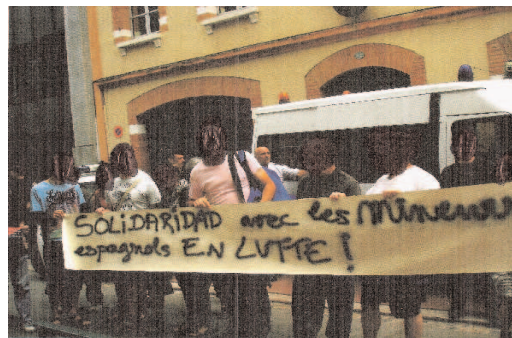 SOLiDARiDAD avec les Mineurs
espagnols EN LUTTE !